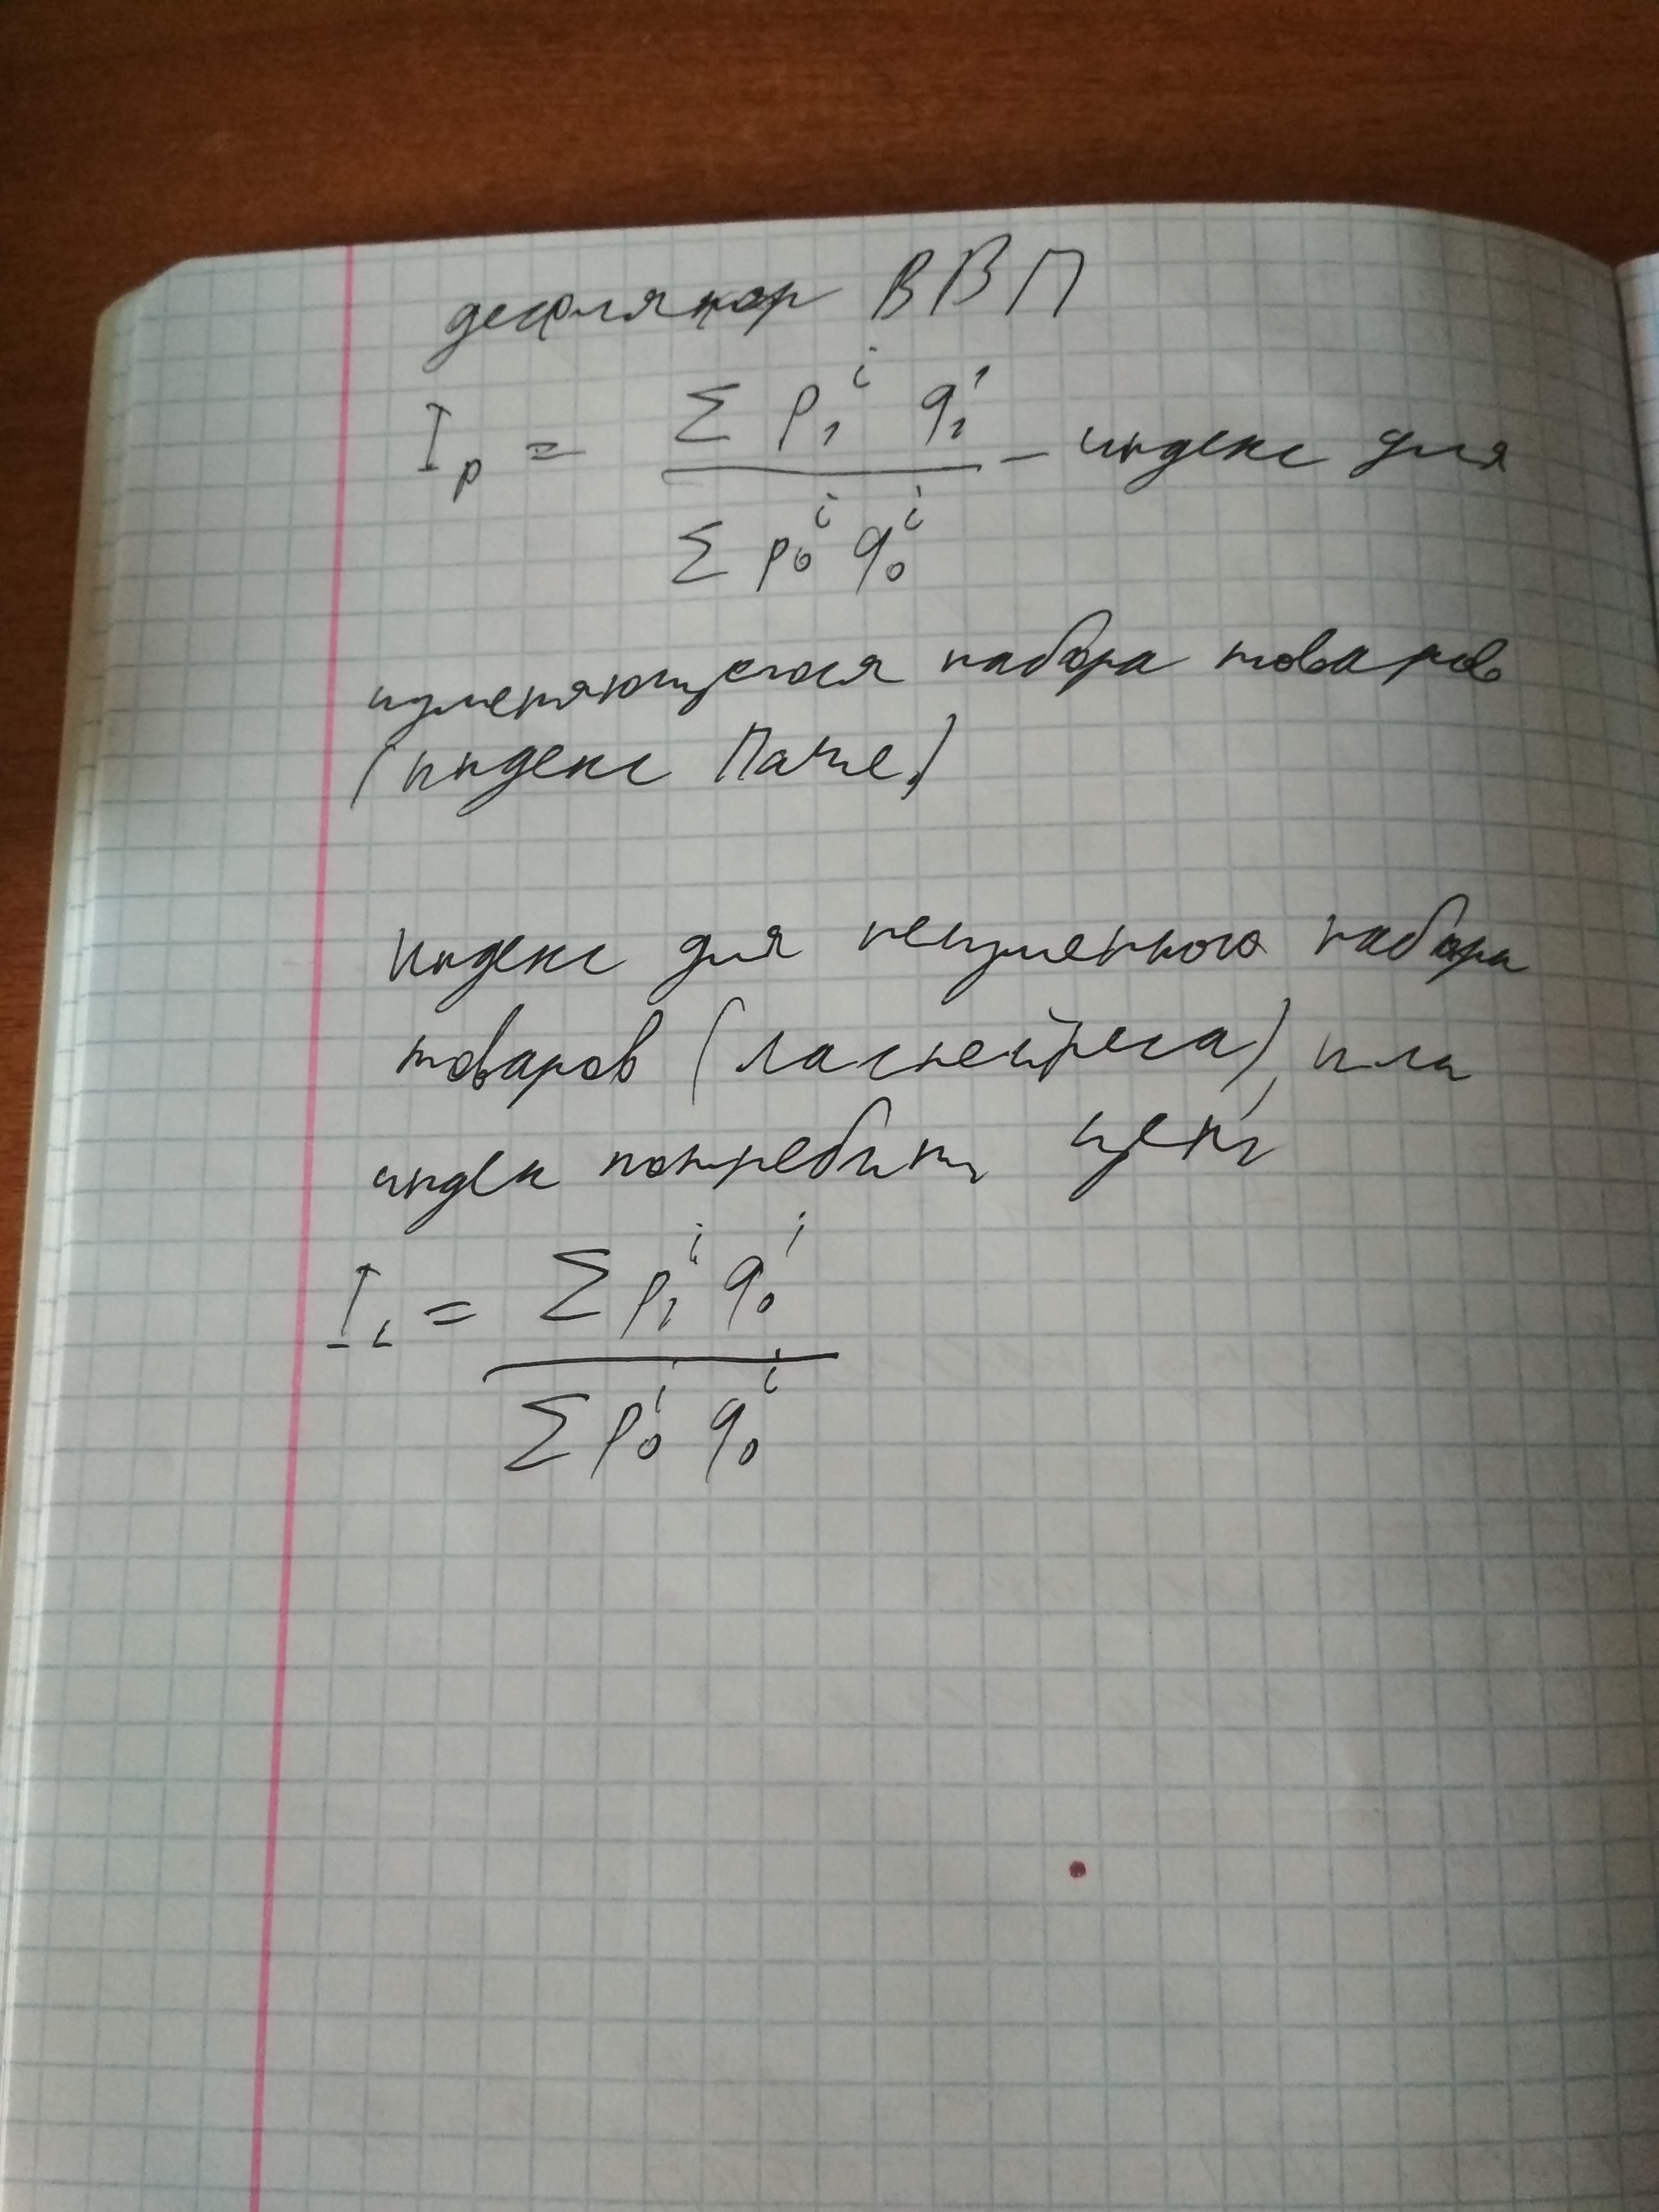 дефлятор ВВП
I_p = Σ p_1^i q_1^i / Σ p_0^i q_0^i – индекс для
изменяющегося набора товаров
(индекс Пааше)
индекс для неизменного набора
товаров (ласпейреса), или
индекс потребит цен
I_L = Σ p_1^i q_0^i / Σ p_0^i q_0^i